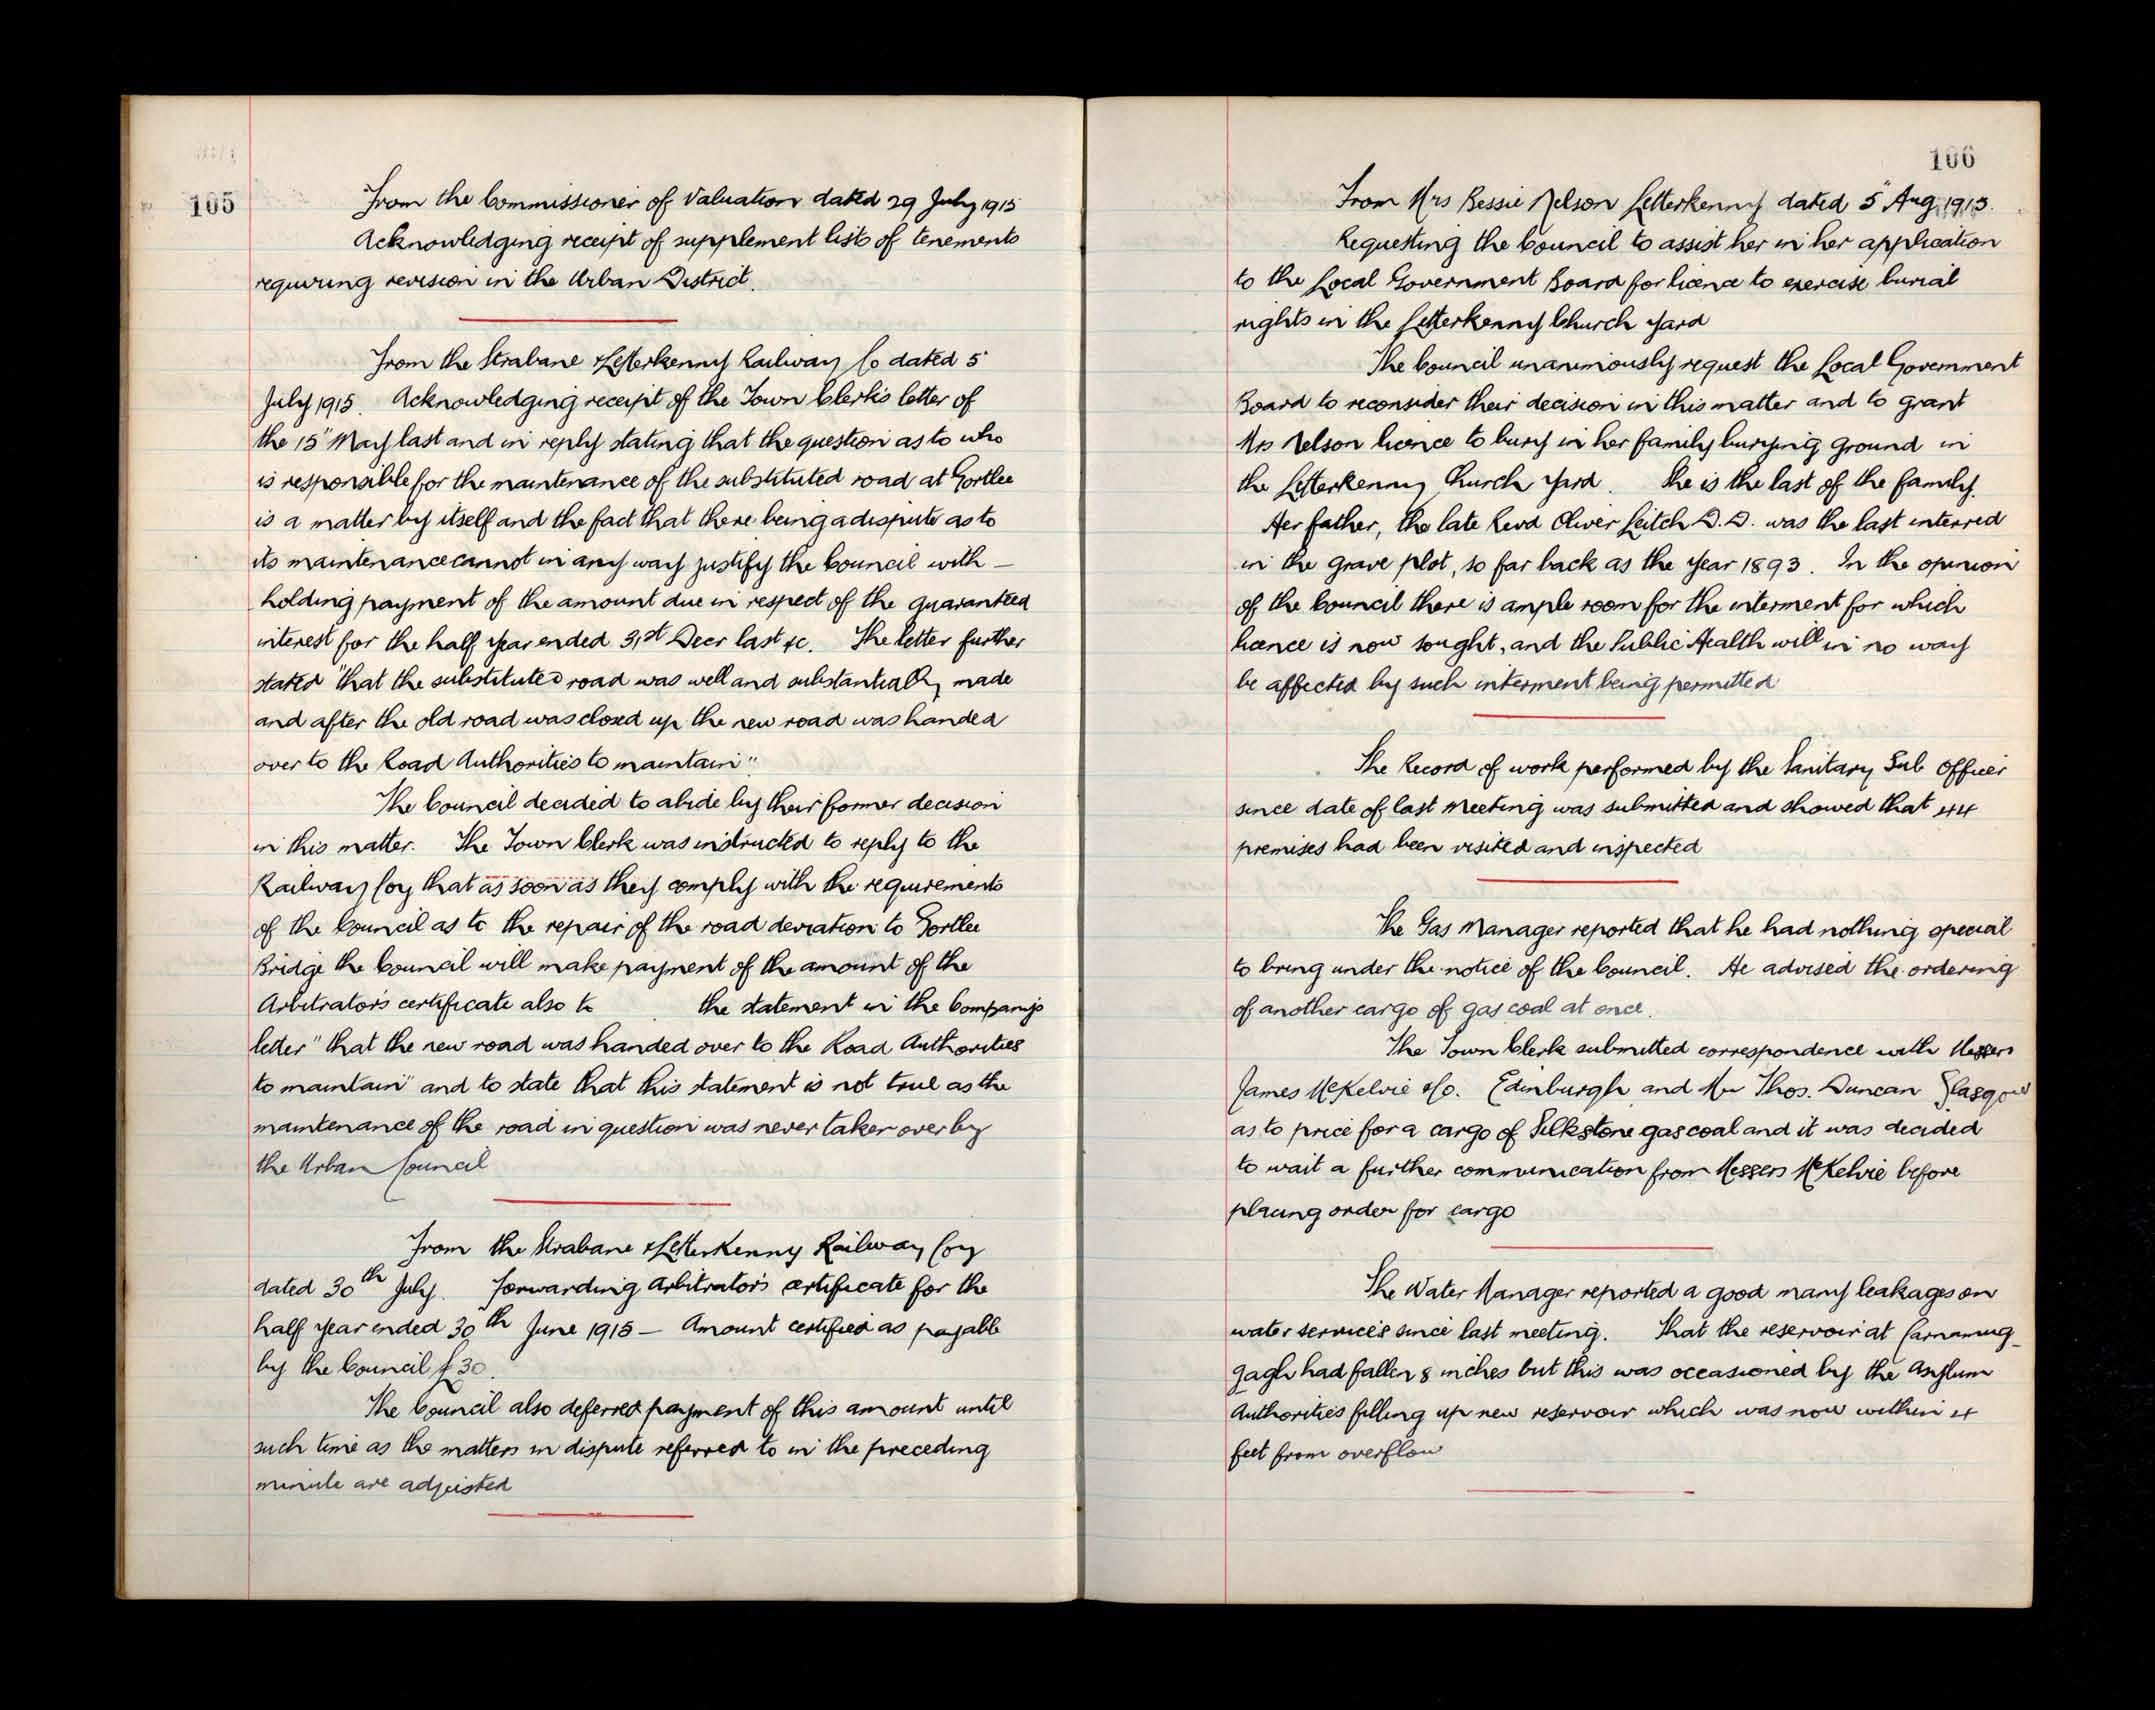 105
From the Commissioner of Valuation dated 29 July 1915
Acknowledging receipt of supplement lists of tenements
requiring revision in the Urban District.
From the Strabane & Letterkenny Railway Co dated 5"
July 1915. Acknowledging receipt of the Town Clerk's letter of
the 15" May last and in reply stating that the question as to who
is responsible for the maintenance of the substituted road at Gortlee
is a matter by itself and the fact that there being a dispute as to
its maintenance cannot in any way justify the Council with-
holding payment of the amount due in respect of the guaranteed
interest for the half year ended 31st Decr last &c. The letter further
stated "that the substituted road was well and substantially made
and after the old road was closed up the new road was handed
over to the Road Authorities to maintain"
The Council decided to abide by their former decision
in this matter. The Town Clerk was instructed to reply to the
Railway Coy that as soon as they comply with the requirements
of the Council as to the repair of the road deviation to Gortlee
Bridge the Council will make payment of the amount of the
Arbitrator's certificate also to the statement in the Companys
letter "that the new road was handed over to the Road Authorities
to maintain" and to state that this statement is not true as the
maintenance of the road in question was never taken over by
the Urban Council
From the Strabane & Letterkenny Railway Coy
dated 30th July. Forwarding Arbitrator's certificate for the
half year ended 30th June 1915 - Amount certified as payable
by the Council £30.
The Council also deferred payment of this amount until
such time as the matters in dispute referred to in the preceding
minute are adjusted
106
From Mrs Bessie Nelson Letterkenny dated 5" Aug. 1915.
Requesting the Council to assist her in her application
to the Local Government Board for licence to exercise burial
rights in the Letterkenny Church Yard
The Council unanimously request the Local Government
Board to reconsider their decision in this matter and to grant
Mrs Nelson licence to bury in her family burying ground in
the Letterkenny Church Yard. She is the last of the family.
Her father, the late Revd Oliver Leitch D.D. was the last interred
in the grave plot, so far back as the year 1893. In the opinion
of the Council there is ample room for the interment for which
licence is now sought, and the Public Health will in no way
be affected by such interment being permitted
The Record of work performed by the Sanitary Sub Officer
since date of last meeting was submitted and showed that 44
premises had been visited and inspected
The Gas Manager reported that he had nothing special
to bring under the notice of the Council. He advised the ordering
of another cargo of gas coal at once.
The Town Clerk submitted correspondence with Messrs
James McKelvie & Co. Edinburgh and Mr Thos. Duncan Glasgow
as to price for a cargo of Silkstone gas coal and it was decided
to wait a further communication from Messrs McKelvie before
placing order for cargo
The Water Manager reported a good many leakages on
water services since last meeting. That the reservoir at Carnamug-
gagh had fallen 8 inches but this was occasioned by the Asylum
Authorities filling up new reservoir which was now within 4
feet from overflow